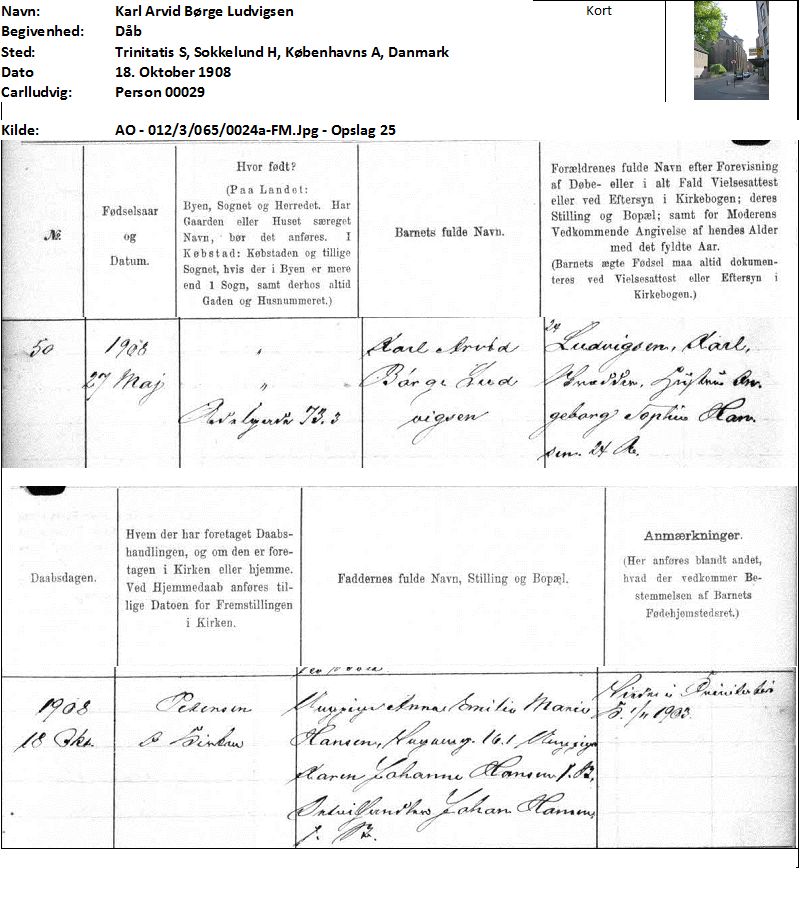 Navn: Karl Arvid Børge Ludvigsen
Begivenhed: Dåb
Sted: Trinitatis S, Sokkelund H, Københavns A, Danmark
Dato 18. Oktober 1908
Carlludvig: Person 00029
Kilde: AO - 012/3/065/0024a-FM.Jpg - Opslag 25
Kort
№.
Fødselsaar
og
Datum.
Hvor født?
(Paa Landet:
Byen, Sognet og Herredet. Har
Gaarden eller Huset særeget
Navn, bør det anføres. I
Købstad: Købstaden og tillige
Sognet, hvis der i Byen er mere
end 1 Sogn, samt derhos altid
Gaden og Husnummeret.)
Barnets fulde Navn.
Forældrenes fulde Navn efter Forevisning
af Døbe- eller i alt Fald Vielsesattest
eller ved Eftersyn i Kirkebogen; deres
Stilling og Bopæl; samt for Moderens
Vedkommende Angivelse af hendes Alder
med det fyldte Aar.
(Barnets ægte Fødsel maa altid dokumen-
teres ved Vielsesattest eller Eftersyn i
Kirkebogen.)
50
1908
27 Maj
"
"
Adelgade 73.3
Karl Arvid
Børge Lud
vigsen
24
Ludvigsen, Karl,
Hustru
geborg Sophie Han-
sen. 24 A.
Daabsdagen.
Hvem der har foretaget Daabs-
handlingen, og om den er fore-
tagen i Kirken eller hjemme.
Ved Hjemmedaab anføres til-
lige Datoen for Fremstillingen
i Kirken.
Faddernes fulde Navn, Stilling og Bopæl.
Anmærkninger.
(Her anføres blandt andet,
hvad der vedkommer Be-
stemmelsen af Barnets
Fødehjemstedsret.)
1908
18 Okt.
Petersen
Kirken
Anna Emilie Marie
Hansen, 16.1
Karen Johanne Hansen
Johan Hansen,
Viede i Trinitatis
K. 1/11 1903.